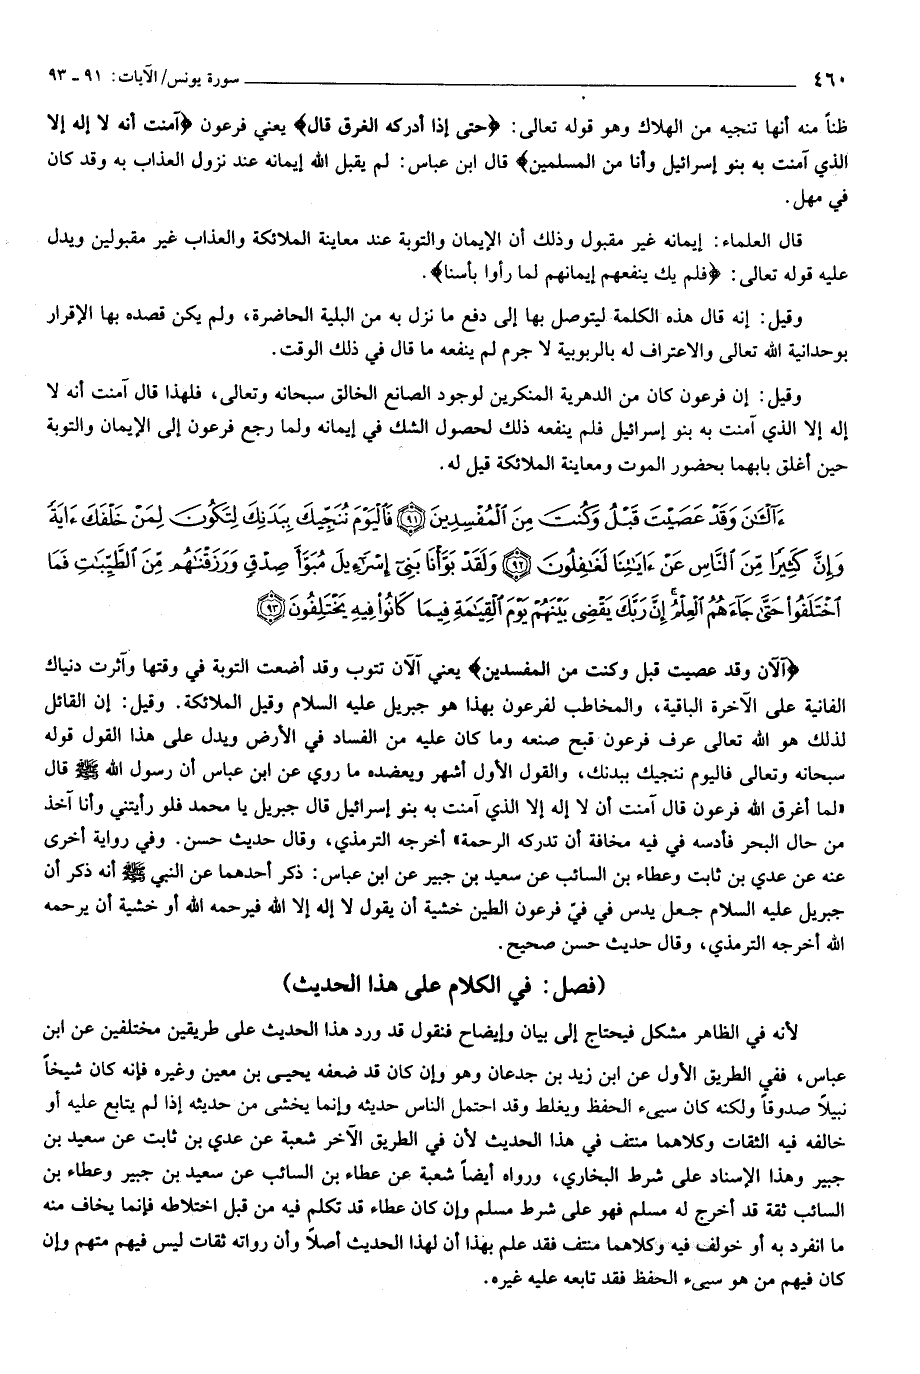 ٤٦٠ سورة يونس/ الآيات: ٩١ - ٩٣
ظناً منه أنها تنجيه من الهلاك وهو قوله تعالى: ﴿حتى إذا أدركه الغرق قال﴾ يعني فرعون ﴿آمنت أنه لا إله إلا
الذي آمنت به بنو إسرائيل وأنا من المسلمين﴾ قال ابن عباس: لم يقبل الله إيمانه عند نزول العذاب به وقد كان
في مهل.
قال العلماء: إيمانه غير مقبول وذلك أن الإيمان والتوبة عند معاينة الملائكة والعذاب غير مقبولين ويدل
عليه قوله تعالى: ﴿فلم يك ينفعهم إيمانهم لما رأوا بأسنا﴾.
وقيل: إنه قال هذه الكلمة ليتوصل بها إلى دفع ما نزل به من البلية الحاضرة، ولم يكن قصده بها الإقرار
بوحدانية الله تعالى والاعتراف له بالربوبية لا جرم لم ينفعه ما قال في ذلك الوقت.
وقيل: إن فرعون كان من الدهرية المنكرين لوجود الصانع الخالق سبحانه وتعالى، فلهذا قال آمنت أنه لا
إله إلا الذي آمنت به بنو إسرائيل فلم ينفعه ذلك لحصول الشك في إيمانه ولما رجع فرعون إلى الإيمان والتوبة
حين أغلق بابهما بحضور الموت ومعاينة الملائكة قيل له.
ءَآلْـَٰنَ وَقَدْ عَصَيْتَ قَبْلُ وَكُنتَ مِنَ ٱلْمُفْسِدِينَ ﴿٩١﴾ فَٱلْيَوْمَ نُنَجِّيكَ بِبَدَنِكَ لِتَكُونَ لِمَنْ خَلْفَكَ ءَايَةً
وَإِنَّ كَثِيرًا مِّنَ ٱلنَّاسِ عَنْ ءَايَٰتِنَا لَغَٰفِلُونَ ﴿٩٢﴾ وَلَقَدْ بَوَّأْنَا بَنِىٓ إِسْرَٰٓءِيلَ مُبَوَّأَ صِدْقٍ وَرَزَقْنَٰهُم مِّنَ ٱلطَّيِّبَٰتِ فَمَا
ٱخْتَلَفُوا۟ حَتَّىٰ جَآءَهُمُ ٱلْعِلْمُ ۚ إِنَّ رَبَّكَ يَقْضِى بَيْنَهُمْ يَوْمَ ٱلْقِيَٰمَةِ فِيمَا كَانُوا۟ فِيهِ يَخْتَلِفُونَ ﴿٩٣﴾
﴿آلآن وقد عصيت قبل وكنت من المفسدين﴾ يعني آلآن تتوب وقد أضعت التوبة في وقتها وآثرت دنياك
الفانية على الآخرة الباقية، والمخاطب لفرعون بهذا هو جبريل عليه السلام وقيل الملائكة. وقيل: إن القائل
لذلك هو الله تعالى عرف فرعون قبح صنعه وما كان عليه من الفساد في الأرض ويدل على هذا القول قوله
سبحانه وتعالى فاليوم ننجيك ببدنك، والقول الأول أشهر ويعضده ما روي عن ابن عباس أن رسول الله ﷺ قال
«لما أغرق الله فرعون قال آمنت أن لا إله إلا الذي آمنت به بنو إسرائيل قال جبريل يا محمد فلو رأيتني وأنا آخذ
من حال البحر فأدسه في فيه مخافة أن تدركه الرحمة» أخرجه الترمذي، وقال حديث حسن. وفي رواية أخرى
عنه عن عدي بن ثابت وعطاء بن السائب عن سعيد بن جبير عن ابن عباس: ذكر أحدهما عن النبي ﷺ أنه ذكر أن
جبريل عليه السلام جعل يدس في فيّ فرعون الطين خشية أن يقول لا إله إلا الله فيرحمه الله أو خشية أن يرحمه
الله أخرجه الترمذي، وقال حديث حسن صحيح.
(فصل: في الكلام على هذا الحديث)
لأنه في الظاهر مشكل فيحتاج إلى بيان وإيضاح فنقول قد ورد هذا الحديث على طريقين مختلفين عن ابن
عباس، ففي الطريق الأول عن ابن زيد بن جدعان وهو وإن كان قد ضعفه يحيـى بن معين وغيره فإنه كان شيخاً
نبيلاً صدوقاً ولكنه كان سيىء الحفظ ويغلط وقد احتمل الناس حديثه وإنما يخشى من حديثه إذا لم يتابع عليه أو
خالفه فيه الثقات وكلاهما منتف في هذا الحديث لأن في الطريق الآخر شعبة عن عدي بن ثابت عن سعيد بن
جبير وهذا الإسناد على شرط البخاري، ورواه أيضاً شعبة عن عطاء بن السائب عن سعيد بن جبير وعطاء بن
السائب ثقة قد أخرج له مسلم فهو على شرط مسلم وإن كان عطاء قد تكلم فيه من قبل اختلاطه فإنما يخاف منه
ما انفرد به أو خولف فيه وكلاهما منتف فقد علم بهذا أن لهذا الحديث أصلاً وأن رواته ثقات ليس فيهم متهم وإن
كان فيهم من هو سيىء الحفظ فقد تابعه عليه غيره.